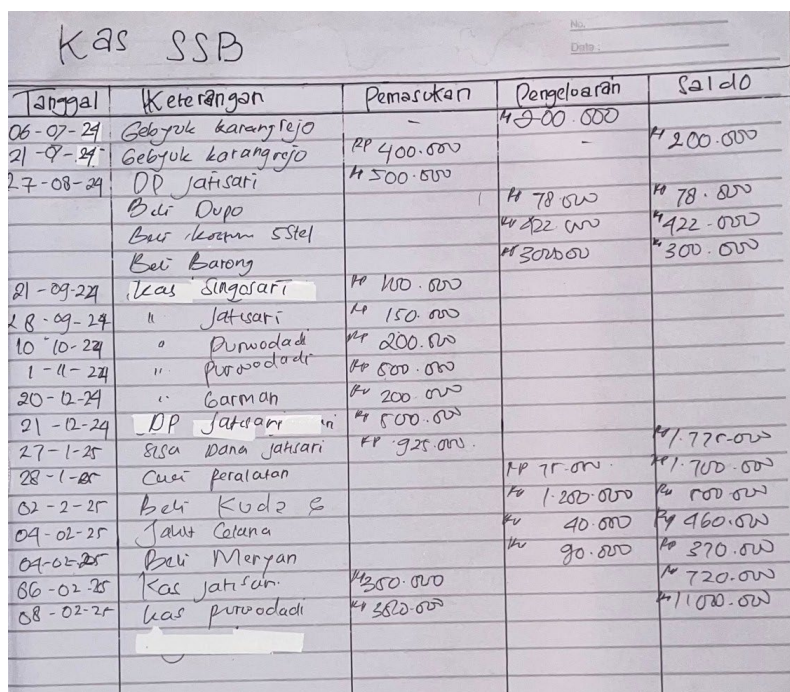 No.
Date :
Kas SSB
Tanggal Keterangan Pemasukan Pengeluaran Saldo
06-07-24 Gebyuk karangrejo - Rp 200.000
21-9-24 Gebyuk karangrejo Rp 400.000 - Rp 200.000
27-08-24 DP Jatisari Rp 500.000
Beli Dupo Rp 78.000 Rp 78.000
Beli kostum 5 Stel Rp 422.000 Rp 422.000
Beli Barong Rp 300000 Rp 300.000
21-09-24 Kas Singosari Rp 400.000
28-09-24 " Jatisari Rp 150.000
10-10-24 " Purwodadi Rp 200.000
1-11-24 " Purwodadi Rp 500.000
20-12-24 " Garman Rp 200.000
21-12-24 DP Jatisari Rp 500.000
27-1-25 Sisa Dana Jatisari RP 925.000. Rp 1.775.000
28-1-25 Cuci Peralatan RP 75.000. Rp 1.700.000
02-2-25 Beli Kuda 6 Rp 1.200.000 Rp 500.000
04-02-25 Jahit Celana Rp 40.000 Rp 460.000
04-02-25 Beli Meryan Rp 90.000 Rp 370.000
06-02-25 Kas Jatisari Rp 350.000 Rp 720.000
08-02-25 Kas purwodadi Rp 380.000 Rp 1.100.000